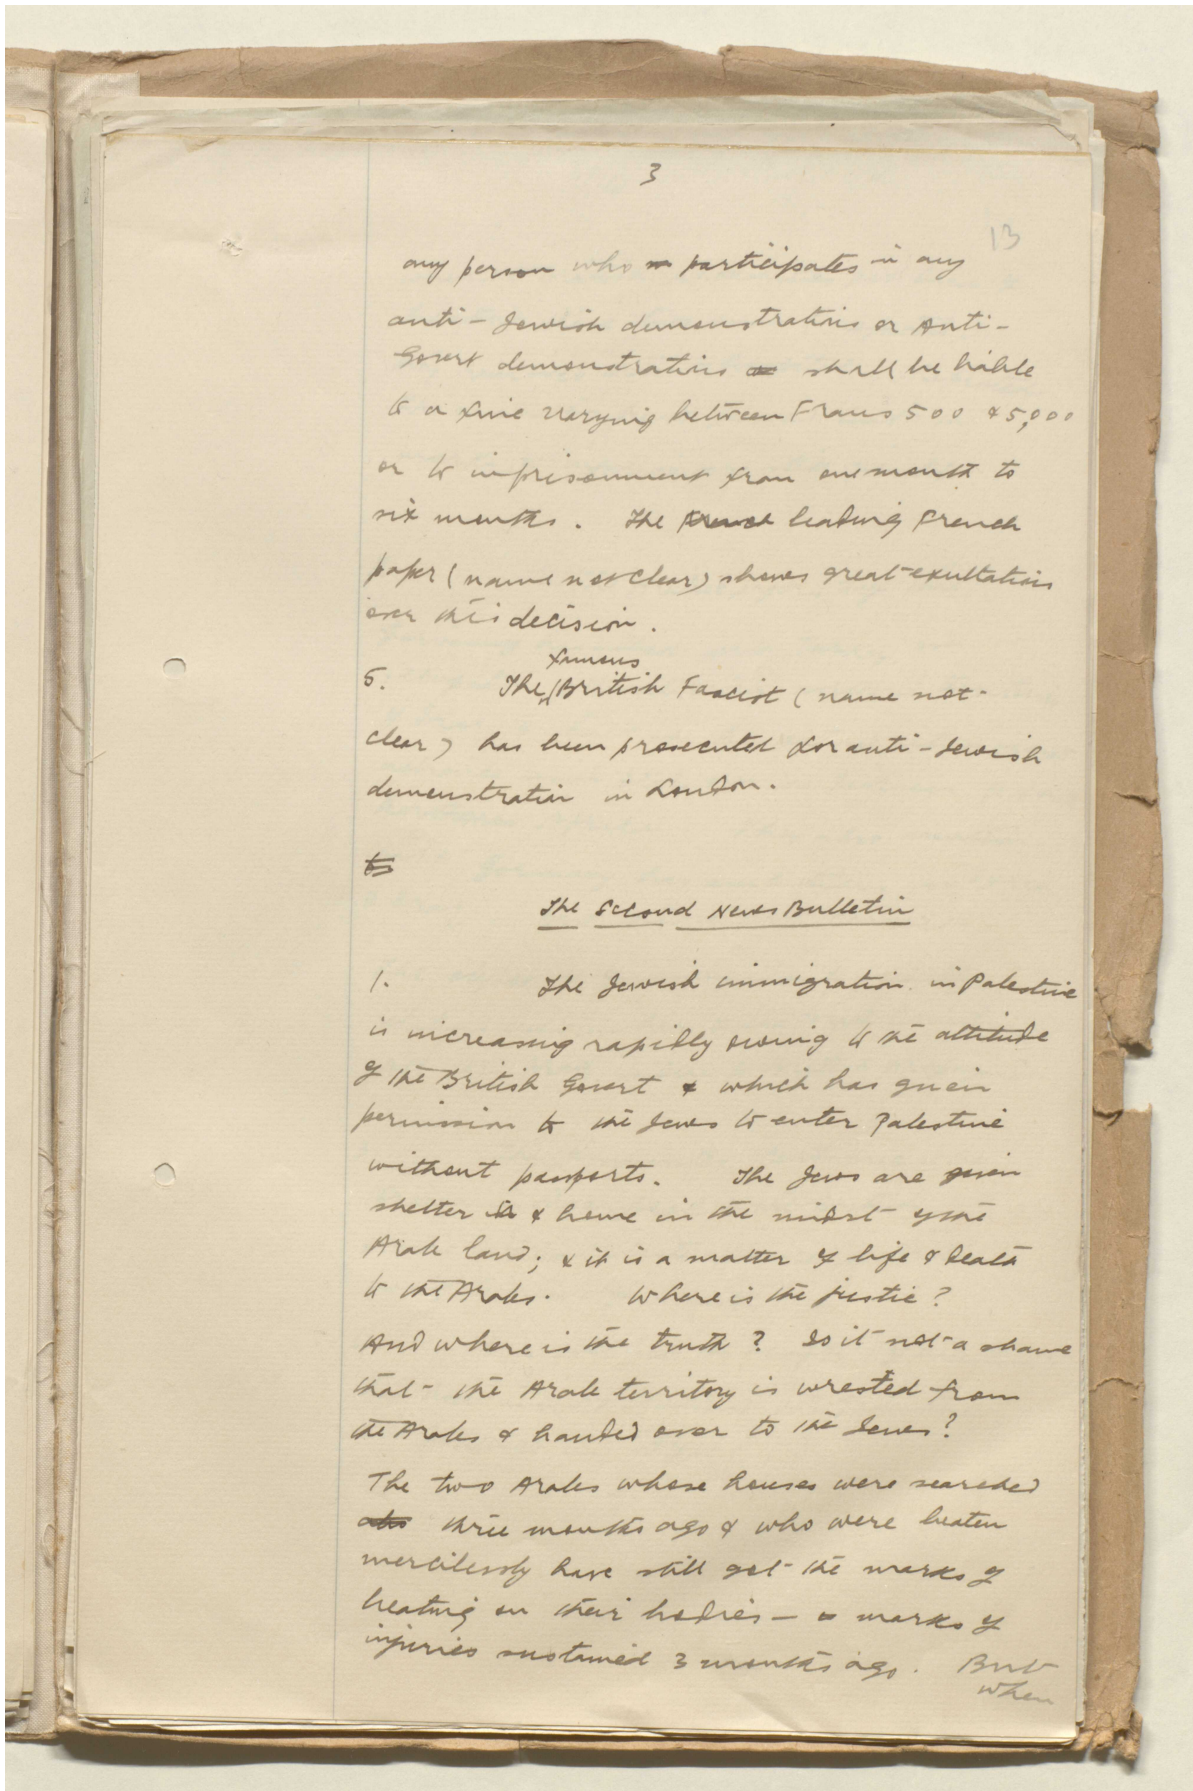 3
13
any person who participates in any
anti-Jewish demonstrations or Anti-
Govert demonstrations shall be liable
to a fine varying between Francs 500 & 5,000
or to imprisonment from one month to
six months. The French leading French
paper (name not clear) shows great exultation
over this decision.
famous
5. The British Fascist (name not
clear) has been prosecuted for anti-Jewish
demonstration in London.
The Second News Bulletin
1. The Jewish immigration in Palestine
is increasing rapidly owing to the attitude
of the British Govert & which has given
permission to the Jews to enter Palestine
without passports. The Jews are given
shelter & home in the midst of the
Arab land; & it is a matter of life & death
to the Arabs. Where is the justie?
And where is the truth? Is it not a shame
that the Arab territory is wrested from
the Arabs & handed over to the Jews?
The two Arabs whose houses were searched
three months ago & who were beaten
mercilessly have still got the marks of
beating on their bodies — marks of
injuries sustained 3 months ago. But
when